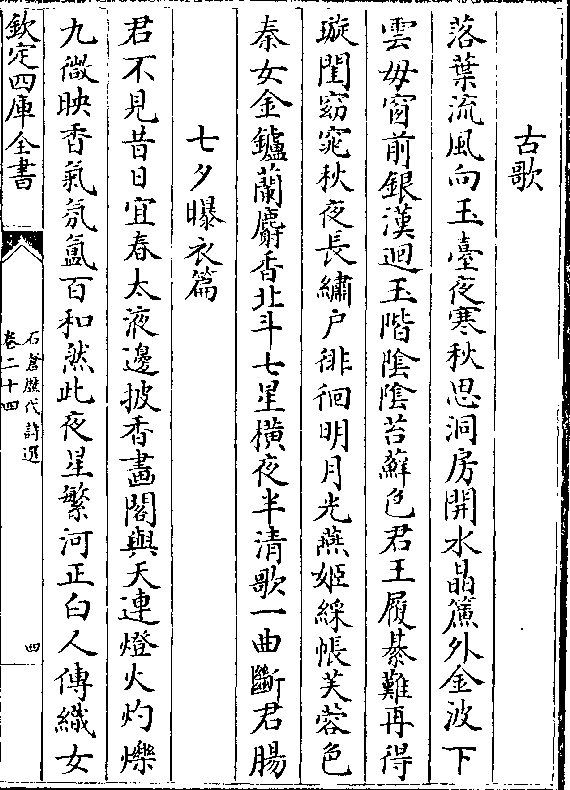 古歌
落葉流風向玉臺夜寒秋思洞房開水晶簾外金波下
雲毋窗前銀漢迴玉階隂隂苔蘚色君王履綦難再得
璇閨窈窕秋夜長繡户徘徊明月光燕姬綵帳芙蓉色
秦女金鑪蘭麝香北斗七星横夜半清歌一曲斷君腸
七夕曝衣篇
君不見昔日宜春太液邊披香畫閣與天連燈火灼爍
九微映香氣氛氲百和然此夜星繁河正白人傳織女
欽定四庫全書
石倉歴代詩選
卷二十四
四